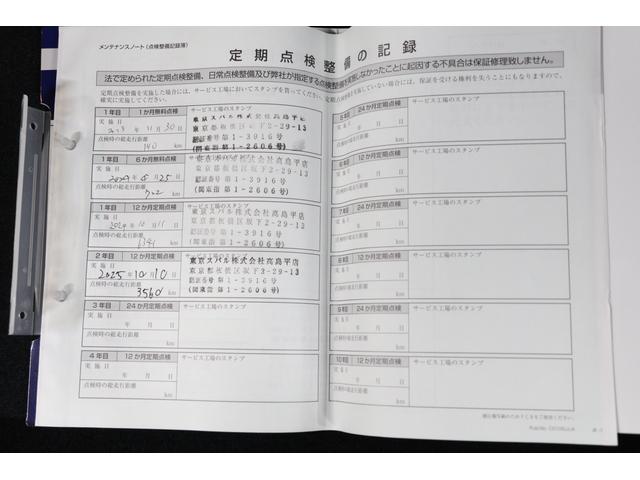 メンテナンスノート（点検整備記録簿）
定期点検整備の記録
法で定められた定期点検整備、日常点検整備及び弊社が指定する点検整備を実施しなかったことに起因する不具合は保証修理致しません。
定期点検整備を実施した場合には、サービス工場においてスタンプを貰ってください。定期点検整備を実施していない場合には、保証を受ける権利を失うことにもなりますので、
確実に実施してください。
1年目 1か月無料点検 サービス工場のスタンプ
実施日
11月30日
点検時の総走行距離
140 km
東京都板橋区坂下2-29-13
認証番号 第1-3916号
(関東指 第1-2606号)
1年目 6か月無料点検 サービス工場のスタンプ
実施日
25日
点検時の総走行距離
km
東京スバル株式会社高島平店
東京都板橋区坂下2-29-13
認証番号 第1-3916号
(関東指 第1-2606号)
1年目 12か月定期点検 サービス工場のスタンプ
実施日
2024年10月11日
点検時の総走行距離
km
東京スバル株式会社高島平店
東京都板橋区坂下2-29-13
認証番号 第1-3916号
(関東指 第1-2606号)
2年目 12か月定期点検 サービス工場のスタンプ
実施日
2025年10月10日
点検時の総走行距離
3560 km
東京スバル株式会社高島平店
東京都板橋区坂下2-29-13
認証番号 第1-3916号
(関東指 第1-2606号)
3年目 24か月定期点検 サービス工場のスタンプ
実施日
年 月 日
点検時の総走行距離
km
4年目 12か月定期点検 サービス工場のスタンプ
実施日
年 月 日
点検時の総走行距離
km
24か月定期点検 サービス工場のスタンプ
年 月 日
km
12か月定期点検 サービス工場のスタンプ
年 月 日
km
24か月定期点検 サービス工場のスタンプ
年 月 日
km
12か月定期点検 サービス工場のスタンプ
年 月 日
km
24か月定期点検 サービス工場のスタンプ
年 月 日
km
12か月定期点検 サービス工場のスタンプ
年 月 日
km